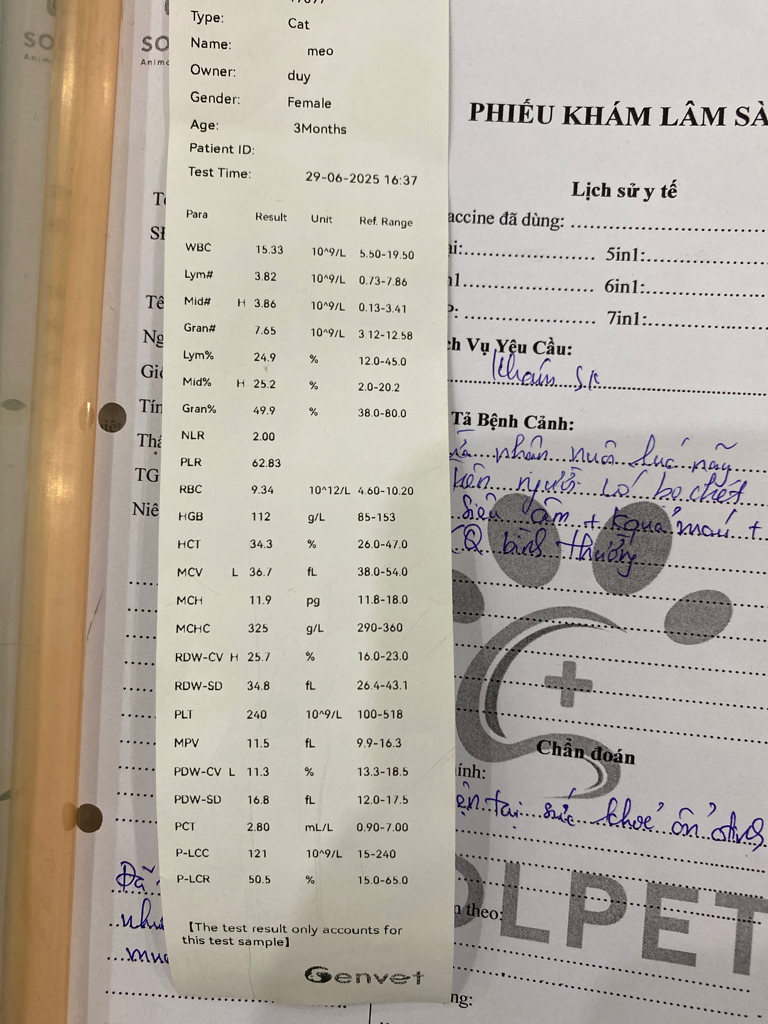 Type: Cat
Name: meo
Owner: duy
Gender: Female
Age: 3Months
Patient ID:
Test Time: 29-06-2025 16:37
Para Result Unit Ref. Range
WBC 15.33 10^9/L 5.50-19.50
Lym# 3.82 10^9/L 0.73-7.86
Mid# H 3.86 10^9/L 0.13-3.41
Gran# 7.65 10^9/L 3.12-12.58
Lym% 24.9 % 12.0-45.0
Mid% H 25.2 % 2.0-20.2
Gran% 49.9 % 38.0-80.0
NLR 2.00
PLR 62.83
RBC 9.34 10^12/L 4.60-10.20
HGB 112 g/L 85-153
HCT 34.3 % 26.0-47.0
MCV L 36.7 fL 38.0-54.0
MCH 11.9 pg 11.8-18.0
MCHC 325 g/L 290-360
RDW-CV H 25.7 % 16.0-23.0
RDW-SD 34.8 fL 26.4-43.1
PLT 240 10^9/L 100-518
MPV 11.5 fL 9.9-16.3
PDW-CV L 11.3 % 13.3-18.5
PDW-SD 16.8 fL 12.0-17.5
PCT 2.80 mL/L 0.90-7.00
P-LCC 121 10^9/L 15-240
P-LCR 50.5 % 15.0-65.0
【The test result only accounts for
this test sample】
Genvet
PHIẾU KHÁM LÂM SÀ
Lịch sử y tế
accine đã dùng:
5in1:
6in1:
7in1:
Vụ Yêu Cầu:
Khám SK
Tả Bệnh Cảnh:
nhân nuôi lúc nãy
người bọ chét
siêu âm + kquả máu +
bình thường
Chẩn đoán
tại sức khoẻ ổn định
theo:
OLPET
Đã